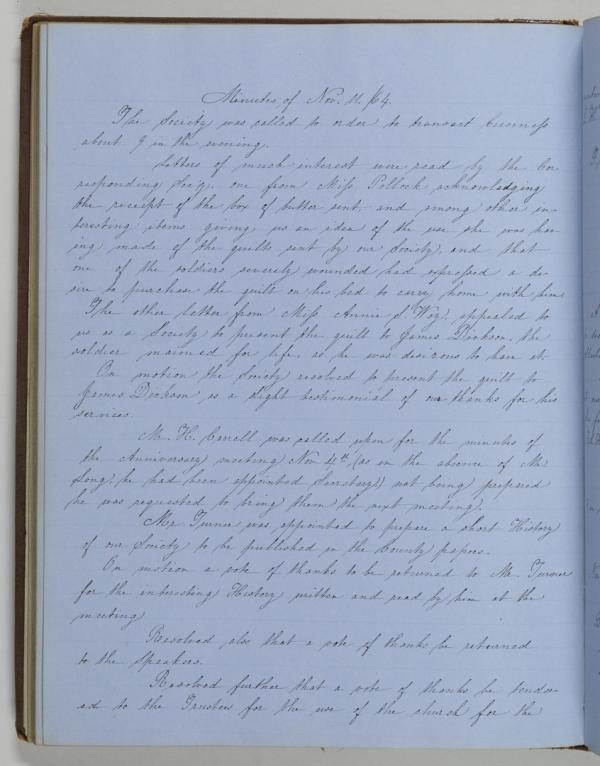 Minutes of Nov. 11. /64.
The Society was called to order to transact business
about 7 in the evening.
Letters of much interest were read by the Cor
responding Sec'y. one from Miss Pollock acknowledging
the receipt of the box of butter sent, and among other in-
teresting items giving us an idea of the use she was hav
ing made of the quilts sent by our Society, and that
one of the soldiers severely wounded had expressed a de-
sire to purchase the quilt on his bed to carry home with him
The other letter from Miss Annie S appealed to
us as a Society to present the quilt to James Dickson, the
soldier maimed for life, as he was desirous to have it.
On motion the Society resolved to present the quilt to
James Dickson as a slight testimonial of our thanks for his
services.
Mr. H. Correll was called upon for the minutes of
the Anniversary meeting Nov 4th, (as in the absence of Mr.
Long, he had been appointed Secretary) not being prepared
he was requested to bring them the next meeting.
Mr Turner was appointed to prepare a short History
of our Society to be published in the County papers.
On motion a vote of thanks to be returned to Mr. Turner
for the interesting History written and read by him at the
meeting
Resolved also that a vote of thanks be returned
to the Speakers.
Resolved further that a vote of thanks be tender
ed to the Trustees for the use of the church for the